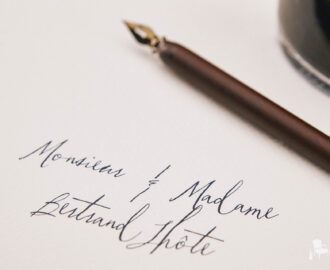 Monsieur & Madame
Bertrand Lhôte